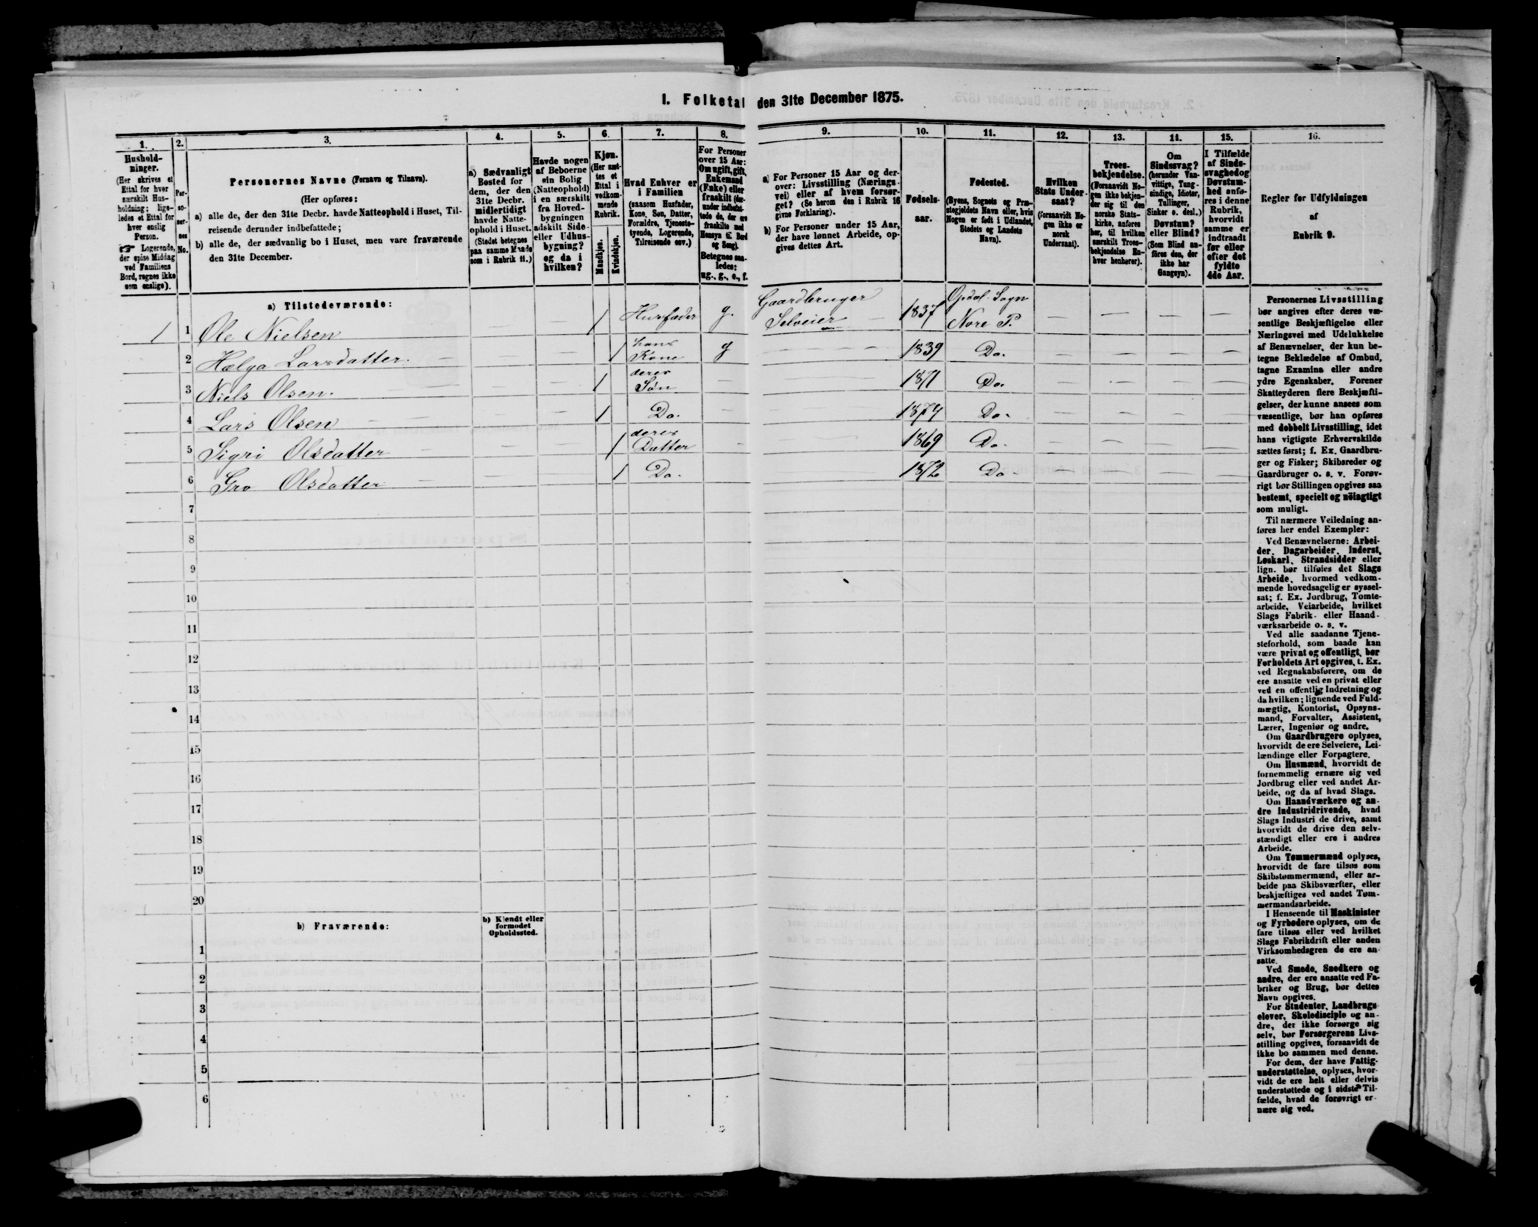 I. Folketal den 31te December 1875.
1.
Hushold-
ninger.
(Her skrives et
Ettal for hver
særskilt Hus-
holdning; lige-
ledes et Ettal for
hver enslig
Person.
☞ Logerende,
der spise Middag
ved Familiens
Bord, regnes ikke
som enslige).
2.
Per-
so-
ner-
nes
No.
3.
Personernes Navne (Fornavn og Tilnavn).
(Her opføres:
a) alle de, der den 31te Decbr. havde Natteophold i Huset, Til-
reisende derunder indbefattede;
b) alle de, der sædvanlig bo i Huset, men vare fraværende
den 31te December.
4.
a) Sædvanligt
Bosted for
dem, der den
31te Decbr.
midlertidigt
havde Natte-
ophold i Huset.
(Stedet betegnes
paa samme Maade
som i Rubrik 11.)
5.
Havde nogen
af Beboerne
sin Bolig
(Natteophold)
i en særskilt
fra Hoved-
bygningen
adskilt Side-
eller Udhus-
bygning?
og da i
hvilken?
6.
Kjøn.
(Her sæt-
tes et
Ettal i
vedkom-
mende
Rubrik.
Mandkjøn.
Kvindekjøn.
7.
Hvad Enhver er
i Familien
(saasom Husfader,
Kone, Søn, Datter,
Forældre, Tjeneste-
tyende, Logerende,
Tilreisende osv.)
8.
For Personer
over 15 Aar:
Om ugift, gift,
Enkemand
(Enke) eller
fraskilt
Betegnes saa-
ledes:
ug., g., e., f.
9.
a) For Personer 15 Aar og der-
over: Livsstilling (Nærings-
vei) eller af hvem forsør-
get? (Se herom den i Rubrik 16
givne Forklaring).
b) For Personer under 15 Aar,
der have lønnet Arbeide, op-
gives dettes Art.
10.
Fødsels-
aar.
11.
Fødested.
(Byens, Sognets og Præ-
stegjeldets Navn eller, hvis
Nogen er født i Udlandet,
Stedets og Landets
Navn).
12.
Hvilken
Stats Under-
saat?
(forsaavidt No-
gen ikke er
norsk
Undersaat).
13.
Troes-
bekjendelse.
(Forsaavidt No-
gen ikke bekjen-
der sig til den
norske Stats-
kirke, anføres
her, til hvilken
særskilt Troes-
bekjendelse En-
hver henhører).
14.
Om
Sindssvag?
(herunder Van-
vittige, Tung-
sindige, Idioter,
Tullinger,
Sinker o. desl.)
Døvstum?
eller Blind?
(Som Blind an-
føres den, der
ikke har
Gangsyn).
15.
I Tilfælde
af Sinds-
svaghed og
Døvstum-
hed anfø-
res i denne
Rubrik,
hvorvidt
samme er
indtraadt
før eller
efter det
fyldte
4de Aar.
16.
Regler for Udfyldningen
af
Rubrik 9.
a) Tilstedeværende:
1 1 Ole Nielsen 1 Husfader g. Gaardbruger Selveier 1837 Opdal Sogn Nore P.
2 Helga Larsdatter. 1 hans Kone g 1839 Do.
3 Niels Olsen. 1 deres Søn 1871 Do.
4 Lars Olsen 1 Do. 1874 Do.
5 Sigri Olsdatter 1 deres Datter 1869 Do.
6 Gro Olsdatter 1 Do 1872 Do
7
8
9
10
11
12
13
14
15
16
17
18
19
20
b) Fraværende:
b) Kjendt eller
formodet
Opholdssted.
1
2
3
4
5
6
Personernes Livsstilling
bør angives efter deres væ-
sentlige Beskjæftigelse eller
Næringsvei med Udelukkelse
af Benævnelser, der kun be-
tegne Beklædelse af Ombud,
tagne Examina eller andre
ydre Egenskaber. Forener
Skatteyderen flere Beskjæfti-
gelser, der kunne ansees som
væsentlige, bør han opføres
med dobbelt Livsstilling, idet
hans vigtigste Erhvervskilde
sættes først; f. Ex. Gaardbru-
ger og Fisker; Skibsreder og
Gaardbruger o. s. v. Forøv-
rigt bør Stillingen opgives saa
bestemt, specielt og nöiagtigt
som muligt.
Til nærmere Veiledning an-
føres her endel Exempler:
Ved Benævnelserne: Arbei-
der, Dagarbeider, Inderst,
Løskarl, Strandsidder eller
lign. bør tilføies det Slags
Arbeide, hvormed vedkom-
mende hovedsagelig er syssel-
sat; f. Ex. Jordbrug, Tomte-
arbeide, Veiarbeide, hvilket
Slags Fabrik- eller Haand-
værksarbeide o. s. v.
Ved alle saadanne Tjene-
steforhold, som baade kan
være privat og offentligt, bør
Forholdets Art opgives, t. Ex.
ved Regnskabsførere, om de
ere ansatte ved en privat eller
ved en offentlig Indretning og
da hvilken; lignende ved Fuld-
mægtig, Kontorist, Opsyns-
mand, Forvalter, Assistent,
Lærer, Ingeniør og andre.
Om Gaardbrugere oplyses,
hvorvidt de ere Selveiere, Lei-
lændinge eller Forpagtere.
Om Husmænd, hvorvidt de
fornemmelig ernære sig ved
Jordbrug eller ved andet Ar-
beide, og da af hvad Slags.
Om Haandværkere og an-
dre Industridrivende, hvad
Slags Industri de drive, samt
hvorvidt de drive den selv-
stændigt eller ere i andres
Arbeide.
Om Tømmermænd oplyses,
hvorvidt de fare tilsøs som
Skibstømmermænd, eller ar-
beide paa Skibsværfter, eller
beskjæftiges ved andet Tøm-
mermandsarbeide.
I Henseende til Maskinister
og Fyrbødere oplyses, om de
fare tilsøs eller ved hvilket
Slags Fabrikdrift eller anden
Virksomhedsgren de ere an-
satte.
Ved Smede, Snedkere og
andre, der ere ansatte ved Fa-
briker og Brug, bør dettes
Navn opgives.
For Studenter, Landbrugs
elever, Skoledisciple og an-
dre, der ikke forsørge sig
selv, bør Forsørgerens Livs-
stilling opgives, forsaavidt de
ikke bo sammen med denne.
For dem, der have Fattig-
understøttelse, oplyses, hvor-
vidt de ere helt eller delvis
understøttede og i sidste Til-
fælde, hvad de forøvrigt er-
nære sig ved.